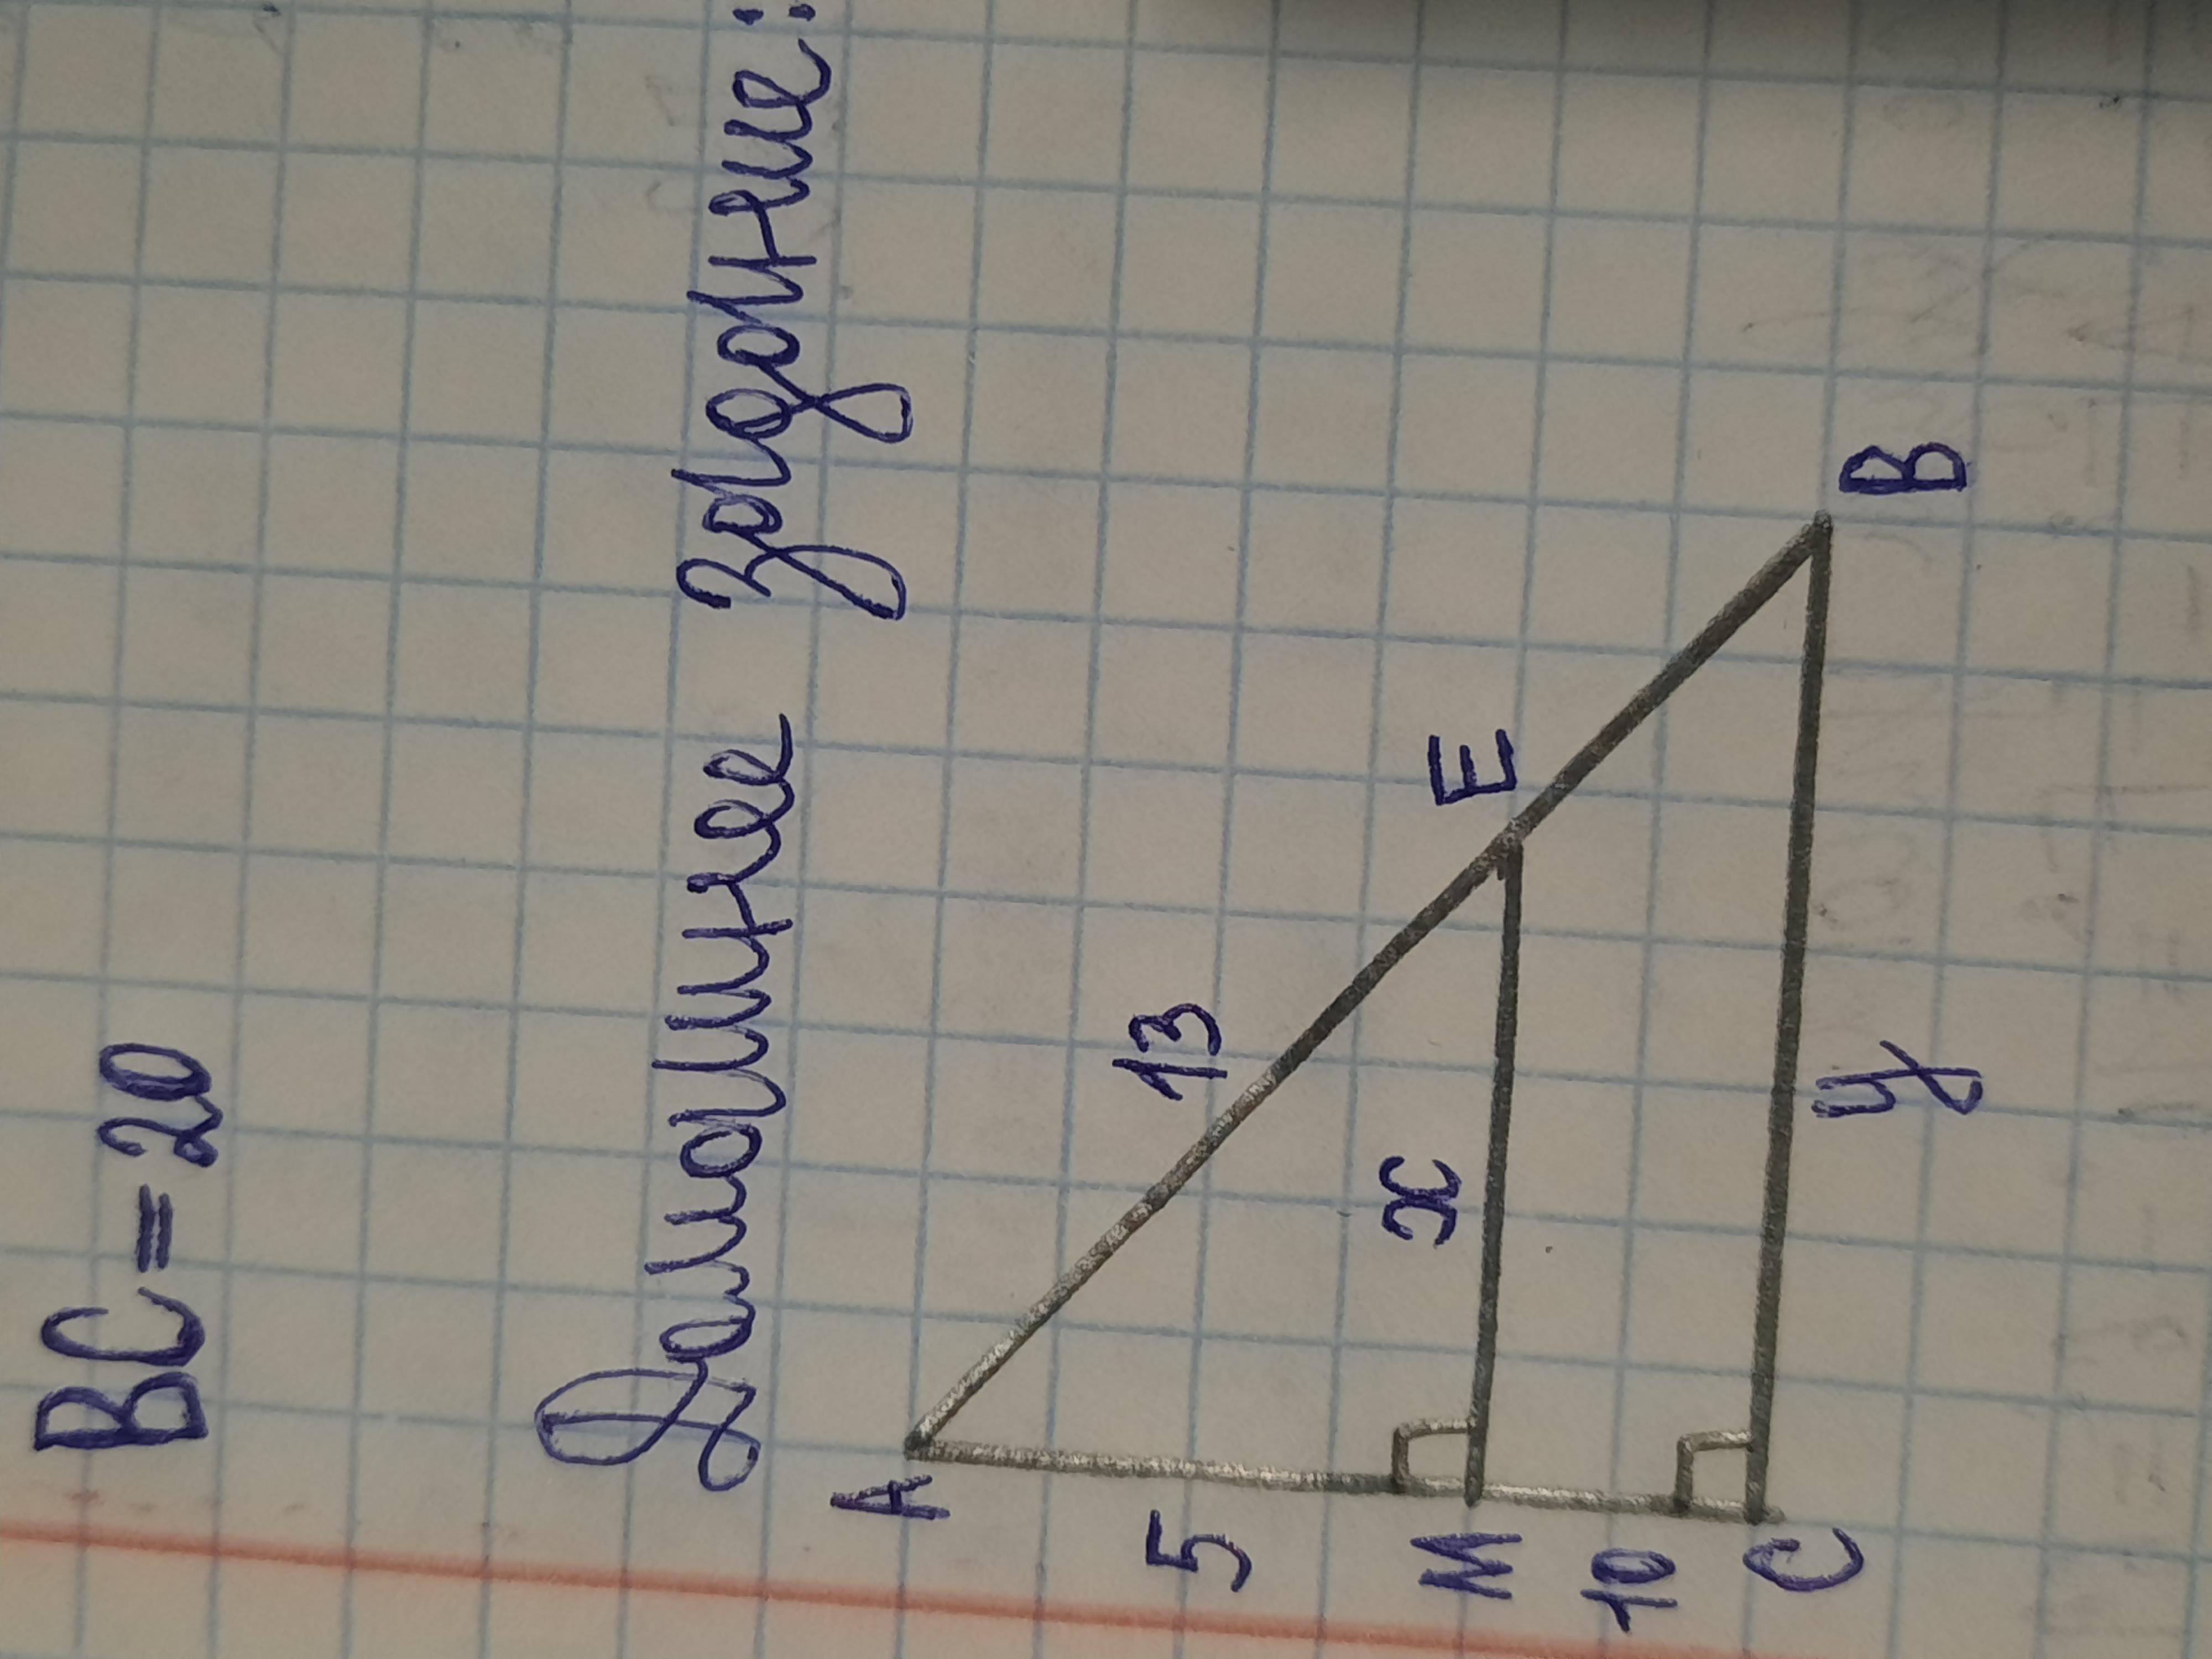 BC=20
Домашнее задание:
A
13
5
E
x
M
10
C
y
B